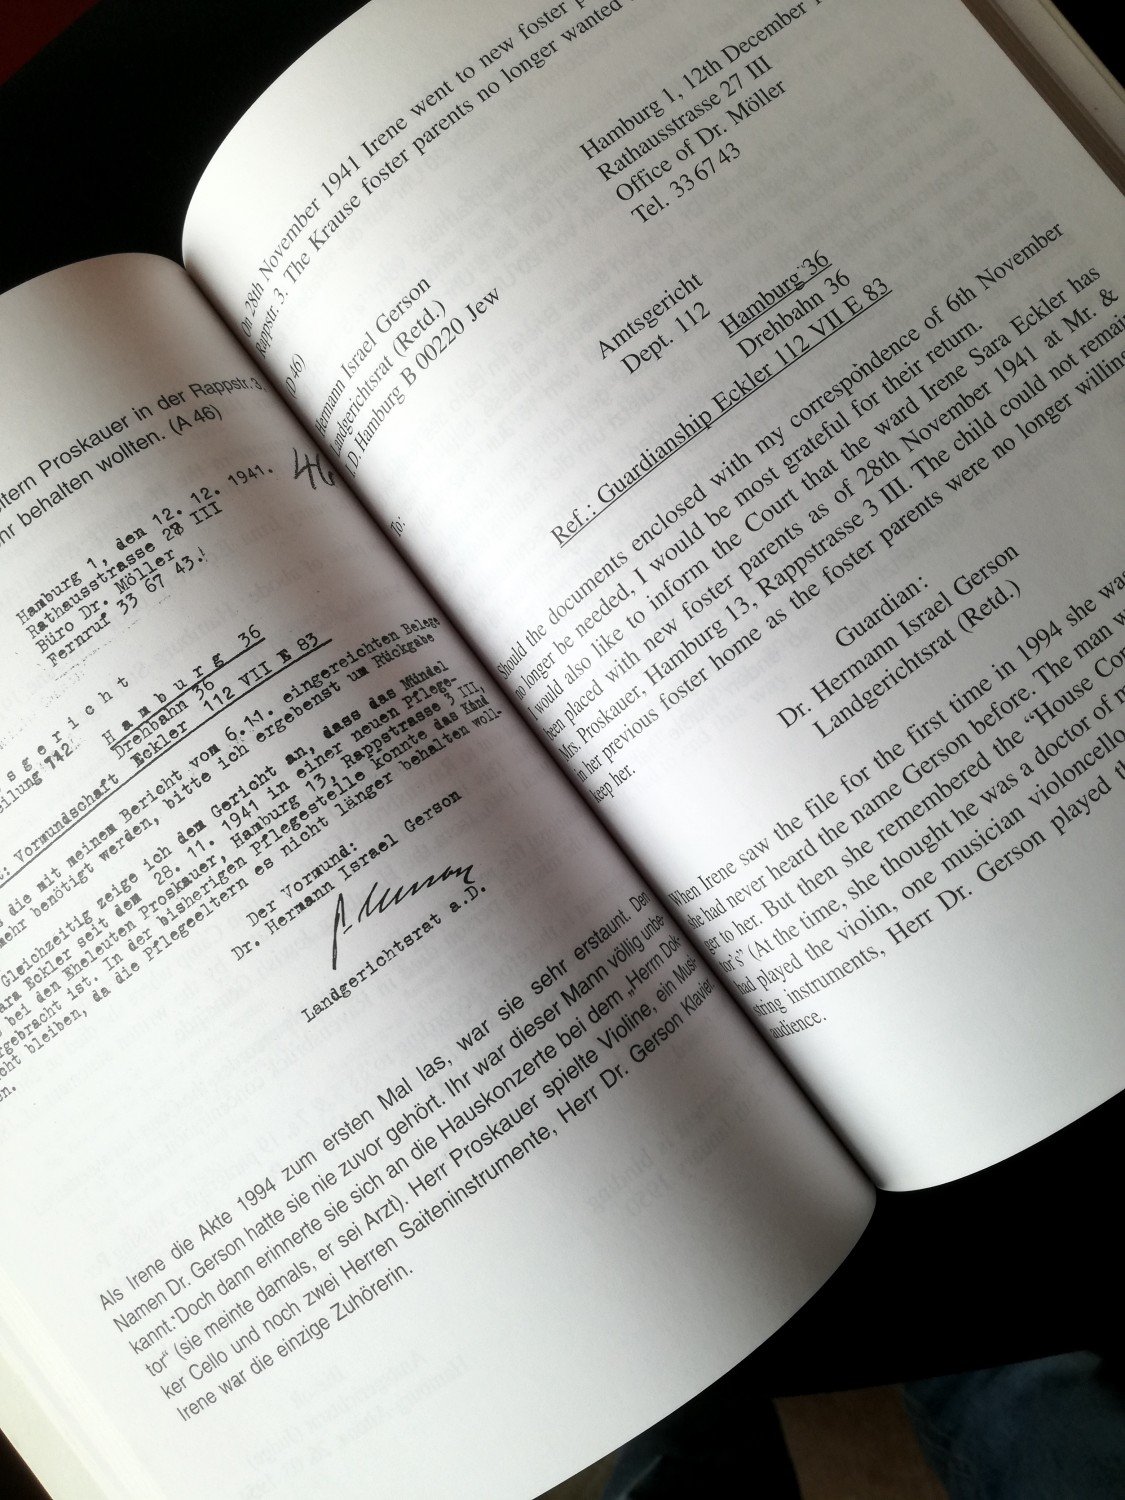 ltern Proskauer in der Rappstr. 3
hr behalten wollten. (A 46)
46
Hamburg 1, den 12. 12. 1941.
Rathausstrasse 27 III
Büro Dr. Möller
Fernruf 33 67 43.
s g e r i c h t
eilung 112
H a m b u r g 36
Drehbahn 36
t: Vormundschaft Eckler 112 VII E 83
die mit meinem Bericht vom 6.11. eingereichten Belege
mehr benötigt werden, bitte ich ergebenst um Rückgabe
Gleichzeitig zeige ich dem Gericht an, dass das Mündel
ara Eckler seit dem 28. 11. 1941 in einer neuen Pflege-
bei den Eheleuten Proskauer, Hamburg 13, Rappstrasse 3 III,
rgebracht ist. In der bisherigen Pflegestelle konnte das Kind
cht bleiben, da die Pflegeeltern es nicht länger behalten woll-
en.
Der Vormund:
Dr. Hermann Israel Gerson
Landgerichtsrat a.D.
Als Irene die Akte 1994 zum ersten Mal las, war sie sehr erstaunt. Den
Namen Dr. Gerson hatte sie nie zuvor gehört. Ihr war dieser Mann völlig unbe-
kannt. Doch dann erinnerte sie sich an die Hauskonzerte bei dem „Herrn Dok-
tor“ (sie meinte damals, er sei Arzt). Herr Proskauer spielte Violine, ein Musi-
ker Cello und noch zwei Herren Saiteninstrumente, Herr Dr. Gerson Klavier.
Irene war die einzige Zuhörerin.
On 28th November 1941 Irene went to new foster p
Rappstr. 3. The Krause foster parents no longer wanted
(D 46)
Hermann Israel Gerson
Landgerichtsrat (Retd.)
I.D. Hamburg B 00220 Jew
Hamburg 1, 12th December 1
Rathausstrasse 27 III
Office of Dr. Möller
Tel. 33 67 43
To:
Amtsgericht
Dept. 112
Hamburg 36
Drehbahn 36
Ref.: Guardianship Eckler 112 VII E 83
Should the documents enclosed with my correspondence of 6th November
no longer be needed, I would be most grateful for their return.
I would also like to inform the Court that the ward Irene Sara Eckler has
been placed with new foster parents as of 28th November 1941 at Mr. &
Mrs. Proskauer, Hamburg 13, Rappstrasse 3 III. The child could not remain
in her previous foster home as the foster parents were no longer willing
keep her.
Guardian:
Dr. Hermann Israel Gerson
Landgerichtsrat (Retd.)
When Irene saw the file for the first time in 1994 she was
she had never heard the name Gerson before. The man w
ger to her. But then she remembered the “House Con
tor's” (At the time, she thought he was a doctor of m
had played the violin, one musician violoncello
string instruments, Herr Dr. Gerson played th
audience.